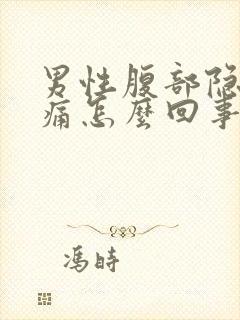 男性腹部隐
痛怎麼回事
馮時